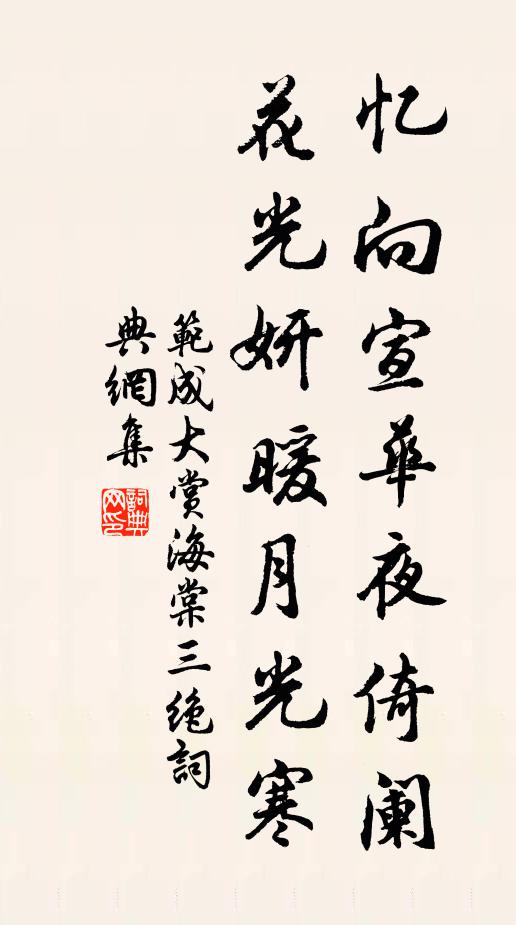 忆向宣華夜倚阑
花光妍暖月光寒
範成大赏海棠三绝詞
典網集
詞典网印